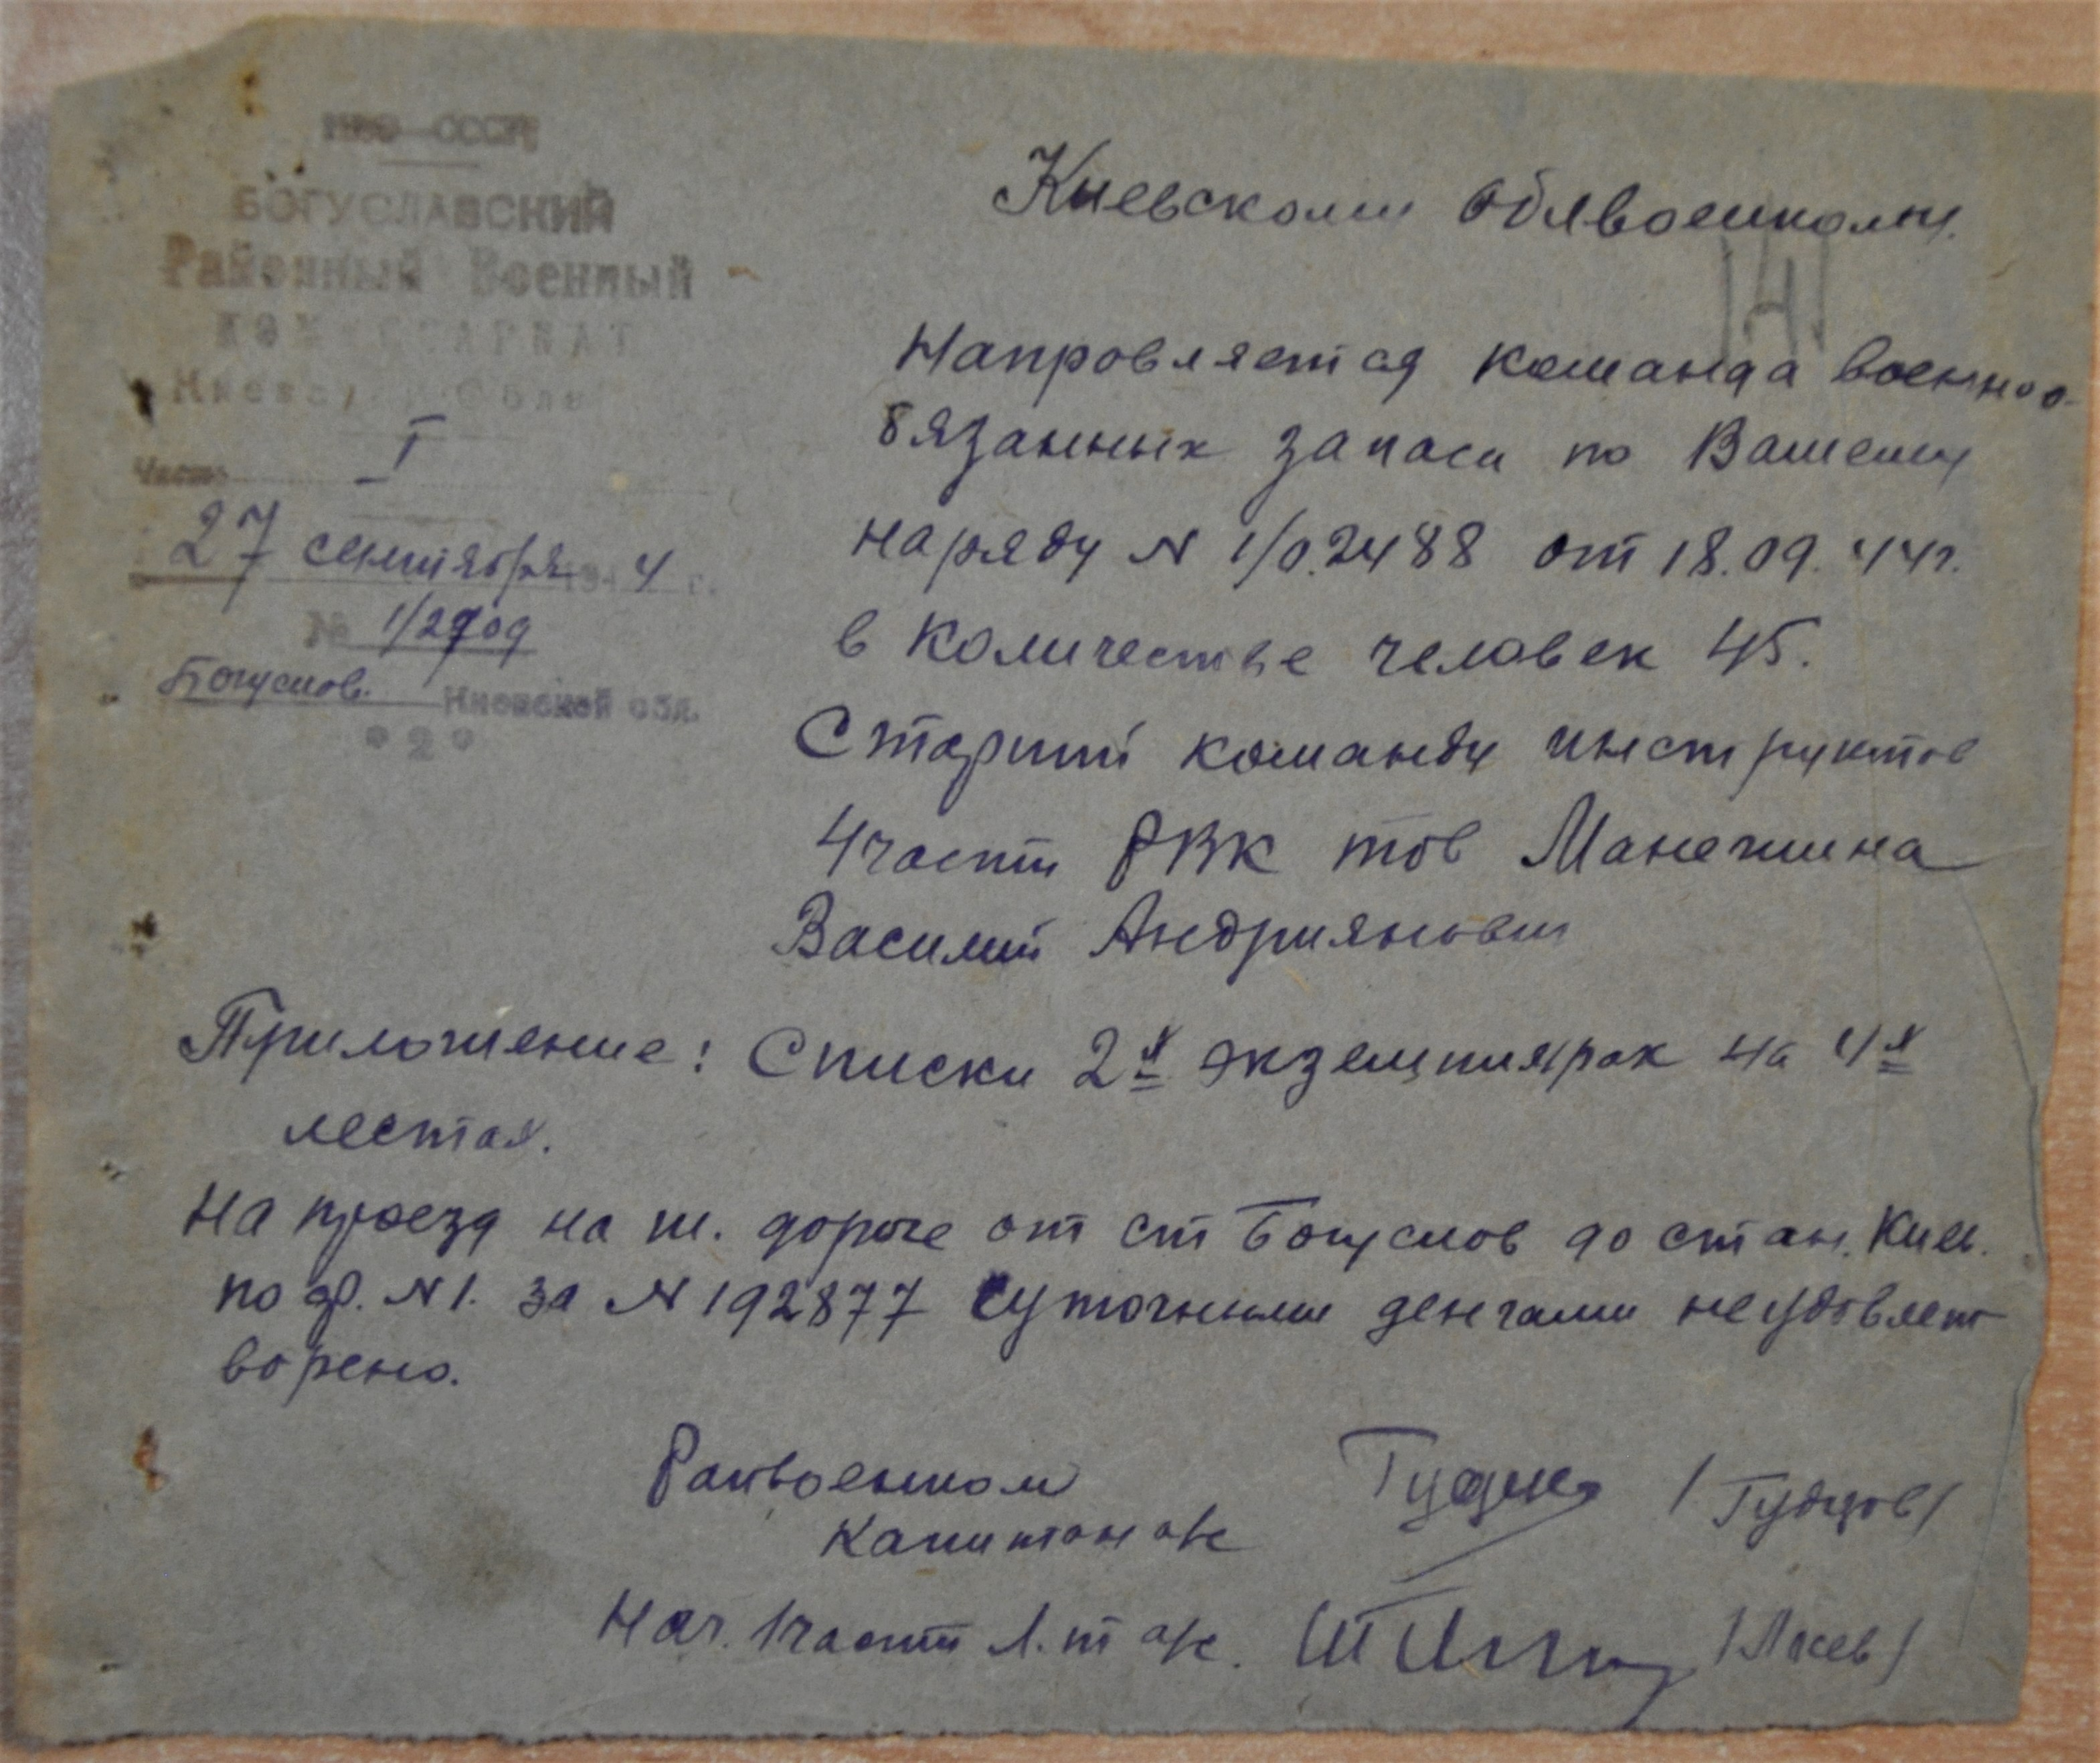 НКО–СССР
БОГУСЛАВСКИЙ
Районный Военный
КОМИССАРИАТ
Киевской Обл
Часть I
27 сентября 194 4 г.
№ 1/2709
Богуслав. Киевской обл.
"2"
Киевскому Облвоенкому.
Напровляется команда военноо-
бязанных запаса по Вашему
наряду N 1/0.2488 от 18.09.44г.
в количестве человек 45.
Старший команды инструктов
4 части РВК тов
Василий Андриянович
Приложение: Списки 2х экземплярах на 4х
лестах.
На проезд на ж. дороге от ст Богуслов до стан. Киев.
по ф. N1. за N 192877 суточными денгами неудовлет
ворено.
Райвоенком
Капитан а/с
/Гудзов/
Нач. 1 части Л.т а/с.